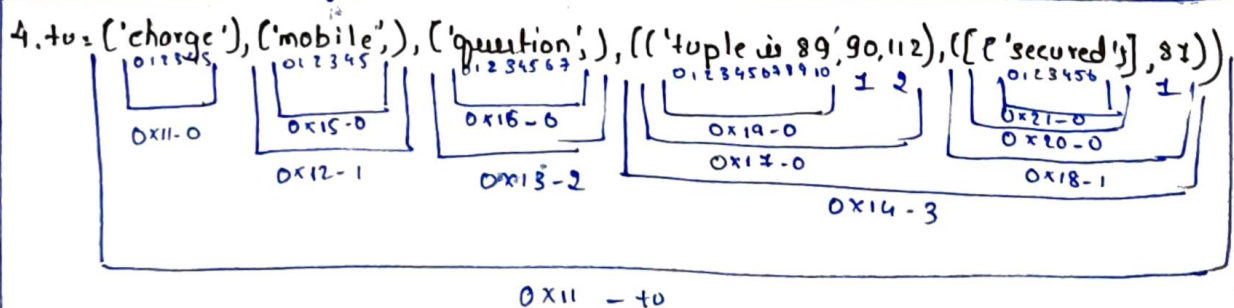 4. tu = ('charge'), ('mobile',), ('question',), (('tuple is 89', 90, 112), ([['secured'], 81))
012345 012345 01234567 012345678910 1 2 0123456 1
0x11-0 0x15-0 0x16-0 0x19-0 0x21-0
0x20-0
0x12-1 0x13-2 0x17-0 0x18-1
0x14-3
0x11 - tu